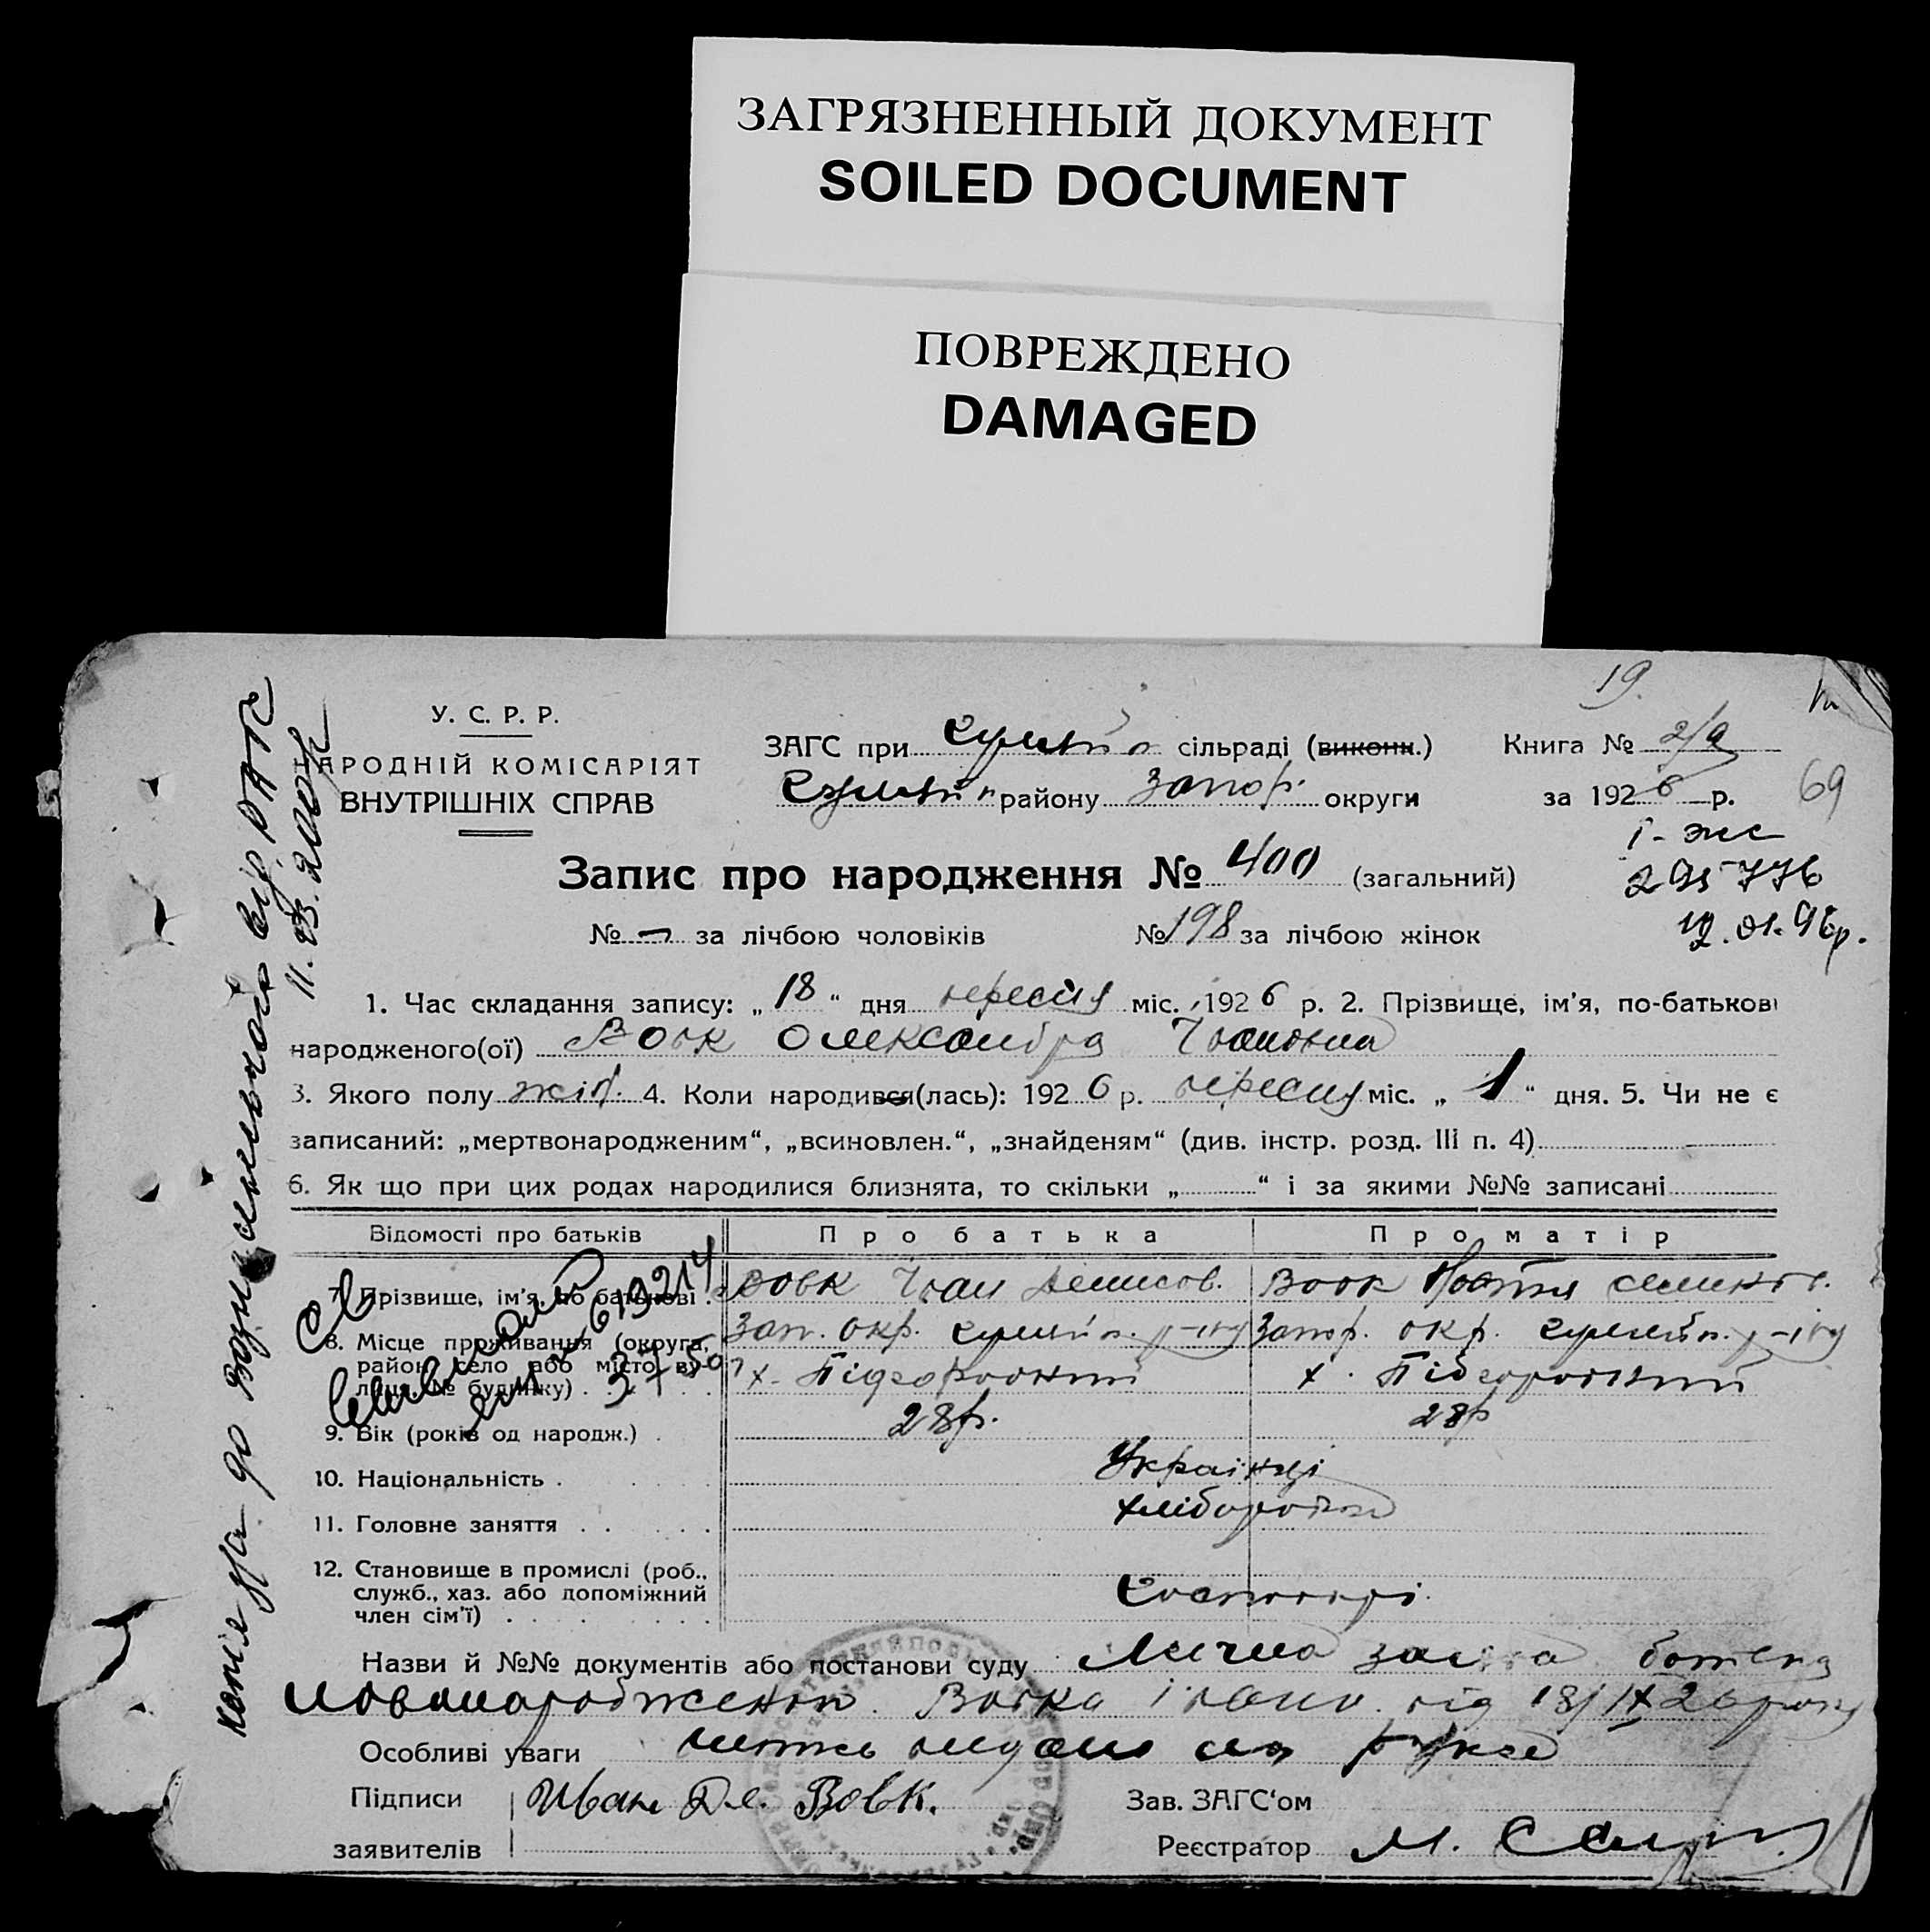 ЗАГРЯЗНЕННЫЙ ДОКУМЕНТ
SOILED DOCUMENT
ПОВРЕЖДЕНО
DAMAGED
19.
У. С. Р. Р.
НАРОДНІЙ КОМІСАРІЯТ
ВНУТРІШНІХ СПРАВ
ЗАГС при сільраді (виконк.) Книга № 2/а
району Запор. округи за 1926 р. 69
Запис про народження № 400 (загальний)
295776
№ — за лічбою чоловіків № 198 за лічбою жінок
19.01.96р.
1. Час складання запису: „ 18 “ дня вересня міс. 1926 р. 2. Прізвище, ім’я, по-батькові
народженого(ої) Вовк Олександра Івановна
3. Якого полу жін. 4. Коли народився(лась): 1926 р. вересня міс. „ 1 “ дня. 5. Чи не є
записаний: „мертвонародженим“, „всиновлен.“, „знайденям“ (див. інстр. розд. III п. 4)
6. Як що при цих родах народилися близнята, то скільки „ “ і за якими №№ записані
Відомості про батьків Про батька Про матір
7. Прізвище, ім’я, по батькові . Вовк Іван Денисов. Вовк Настя
8. Місце проживання (округа, район, село або місто, вулиця, № будинку) . Зап. окр. р-ну х. Підгородний Запор. окр. р-ну х. Підгородний
9. Вік (років од народж.) . 28р. 28р
10. Національність . Українці
11. Головне заняття . . хлібороби
12. Становище в промислі (роб., служб., хаз. або допоміжний член сім’ї) . Господарі.
Назви й №№ документів або постанови суду Лична заява батька
новонародженої Вовка Івана від 18/IX 26 року
Особливі уваги видано на руки
Підписи Иван Де. Вовк. Зав. ЗАГС‘ом
заявителів Реєстратор М.
копія до від РАГС
11.03.2000р
619214